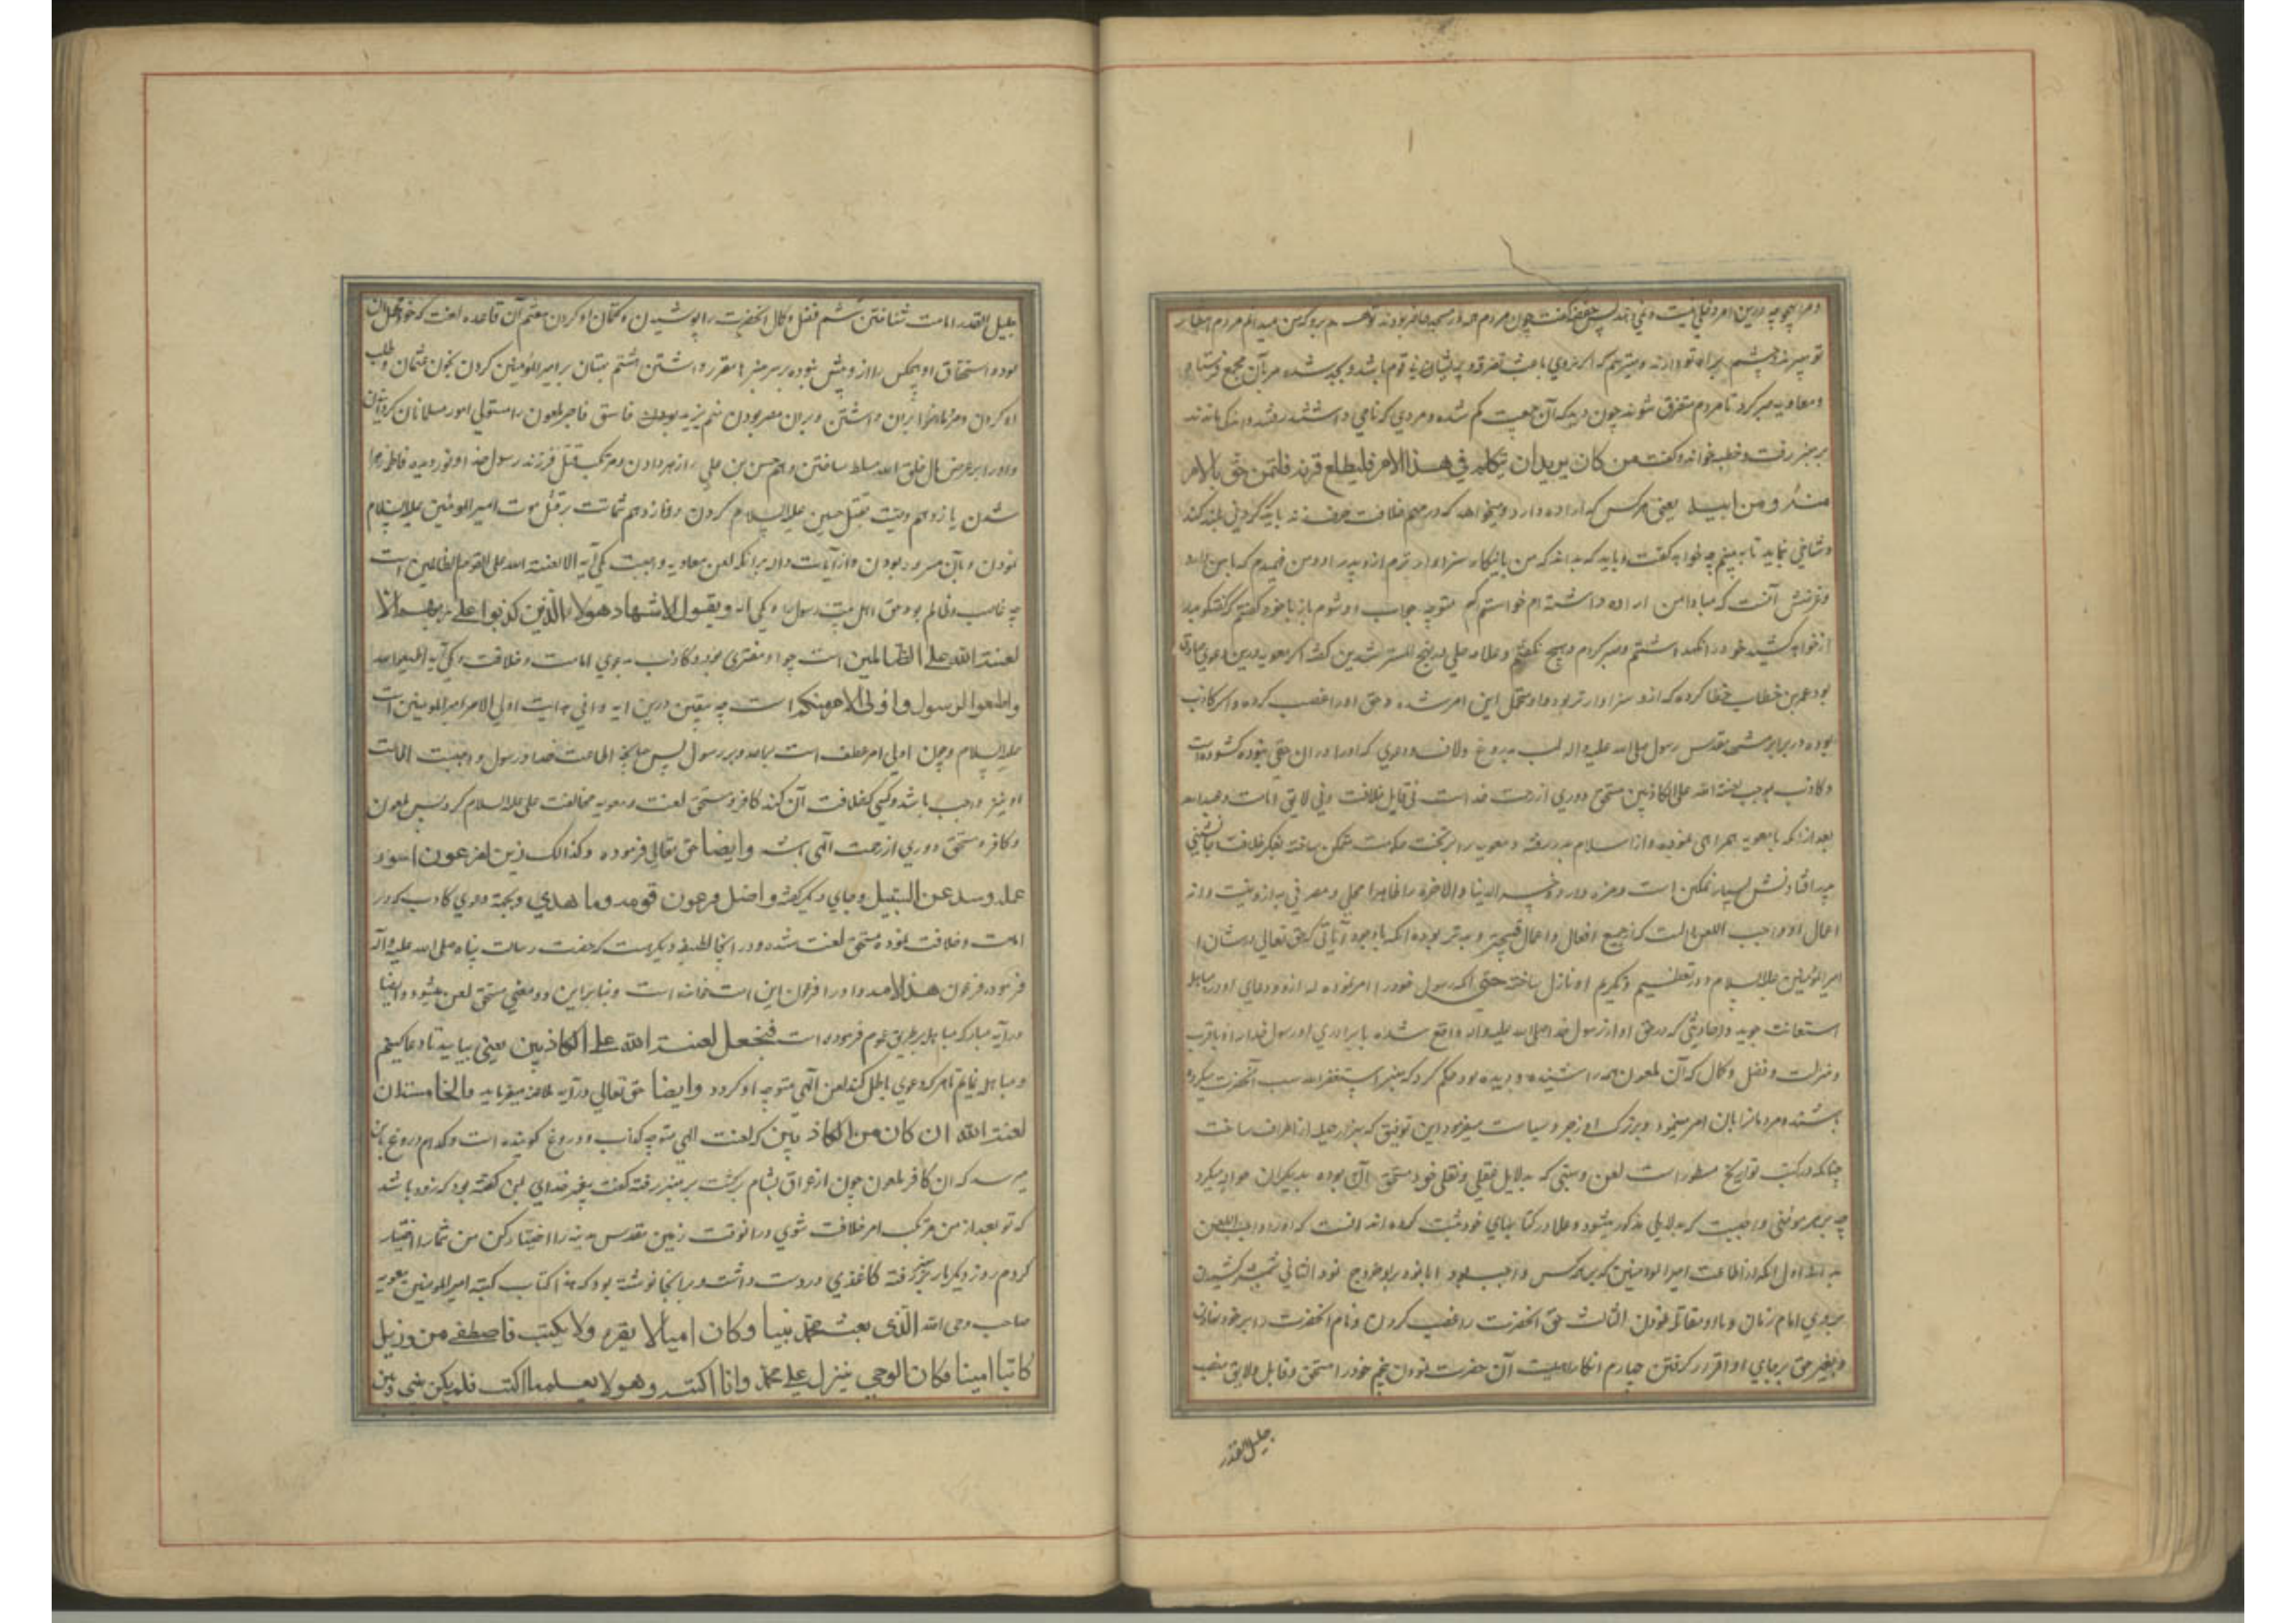 و مرا هیچ چیز درین امر دخلی نیست چون مردم همه در مسجد حاضر بودند مردم انتظار
تو میبرند و چشم براه تو دارند و میترسم که اگر نروی باعث تفرقه و پریشانی قوم باشد
و معاویه صبر کرد تا مردم متفرق شوند چون دید که آن جمعیت کم شده و مردی که نامی داشتند رفتند و اندکی ماندند
بر منبر رفت و خطبه خواند و گفت من کان یرید ان یتکلم فی هذا الامر فلیطلع قرنه فلنحن احق بالامر
منه و من ابیه یعنی هر کس که اراده دارد و میخواهد که در مهم خلافت حرف زند باید که گردنی بلند کند
و شاخی نماید تا به بینم چه خواهد گفت و باید که بداند که من باینکار سزاوارترم از او و پدر او و من فهمیدم که با من دارد
و غرضش آنست که مبادا من اراده داشته ام خواستم که متوجه جواب او شوم باز با خود گفتم که گفتگو
خود را نگه داشتم و صبر کردم و هیچ نگفتم و علامه حلی در نهج المسترشدین گفته اگر معویه درین دعوی صادق
بود عمر بن خطاب خطا کرده که از او سزاوارتر بود و او متحمل این امر شده و حق او را غصب کرده و اگر کاذب
بوده در برابر مقدس رسول صلی الله علیه واله لب بدروغ و لاف و دعوی که او را در آن حقی نبوده گشوده است
و کاذب بموجب لعنة الله علی الکاذبین مستحق دوری از رحمت خداست نی قابل خلافت و نی لایق امامت و عبدالله
بعد از آنکه با معویه همراهی نموده و از اسلام بدر رفته و معویه را بر تخت حکومت متمکن ساخته بفکر خلافت جانشینی
پدر افتادنش بسیار نمکین است و مزه دارد و خسر الدنیا و الاخره را ظاهرا محلی و مصرفی به از او نیست
اعمال او واجب اللعن بالست که از جمیع افعال و اعمال قبیحتر و بدتر بوده آنکه باوجود آیاتی که حق تعالی در شان
امیرالمؤمنین علیه السلام و در تعظیم و تکریم او نازل ساخته حتی آنکه رسول خود را امر نموده که از او و دعای او در مباهله
استعانت جوید و احادیثی که در حق او از رسول خدا صلی الله علیه واله واقع شده با برادری او رسول خدا را و با قرب
و منزلت و فضل و کمال که آن ملعون همه را شنیده و دیده بود حکم کرد که بر منبر استغفرالله سب آنحضرت میکرده
باشند و مردمانرا بان امر مینمود و بزرک او زجر و سیاست میفرمود
چنانکه در کتب تواریخ مسطور است لعن و سبی که بدلایل عقلی و نقلی خود مستحق آن بوده بدیگران حواله میکرد
چه بر هر مؤمنی واجبست که بدلایلی مذکور میشود و علما در کتابهای خود ثبت کرده اند آنست که او را واجب اللعن
اول آنکه از اطاعت امیرالمؤمنین که بر همه کس واجب بود ابا نمود و بر او خروج نمود الثانی شمشیر کشیدن
بر روی امام زمان و با او مقاتله نمودن الثالث حق آنحضرت را غصب کردن و نام آنحضرت را بر خود نهادن
و بغیر حق بر جای او قرار گرفتن چهارم انکار امامت آن حضرت نمودن پنجم خود را مستحق و قابل و لایق منصب
جلیل القدر
جلیل القدر امامت شناختن ششم فضل و کمال آنحضرت را پوشیدن و کتمان او کردن هفتم آن قاعده لعنت که خود
بوده استحقاق او هیچکس را از او بیش نبوده بر سر منبرها مقرر داشتن هشتم بهتان بر امیرالمؤمنین کردن بخون عثمان و طلب
او کردن و مردمانرا بران داشتن و بران مصر بودن نهم یزید فاسق فاجر ملعون را متولی امور مسلمانان گردانیدن
و او را بر عرض و مال خلق الله مسلط ساختن دهم حسن بن علی را زهر دادن و مرتکب قتل فرزند رسول خدا و نور دیده فاطمه زهرا
شدن یازدهم وصیت بقتل حسین علیه السلام کردن دوازدهم شماتت بر قتل و موت امیرالمؤمنین علیه السلام
نمودن و بآن مسرور بودن و از آیات داله برانکه لعن معاویه واجبست یکی آیه الا لعنة الله علی القوم الظالمین است
چه غاصب و ظالم بود حق اهل بیت رسول را و یکی آیه و یقول الاشهاد هولاء الذین کذبوا علی ربهم الا
لعنة الله علی الظالمین است چه او مفتری بود و کاذب بدعوی امامت و خلافت و یکی آیه اطیعوا الله
و اطیعوا الرسول و اولی الامر منکم است چه بیقین درین آیه وافی هدایت اولی الامر امیرالمؤمنین است
علیه السلام و چون اولی الامر عطف است بالله و بر رسول پس چنانچه اطاعت خدا و رسول واجبست اطاعت
او نیز واجب باشد و کسی که خلافت آن کند کافر و مستحق لعنت و معویه مخالفت علی علیه السلام کرد پس ملعون
و کافر و مستحق دوری از رحمت الهی باشد و ایضا حق تعالی فرموده و کذالک زین لفرعون سوء
عمله و صد عن السبیل و جای دیگر گفته و اضل فرعون قومه و ما هدی و بجهة دعوی کاذب که در
امامت و خلافت نموده مستحق لعنت شده و در اینجا لطیفه دیگر هست که حضرت رسالت پناه صلی الله علیه و آله
فرمود فرعون هذه الامه و او را فرعون این امت خوانده است و بنابراین دو معنی مستحق لعن میشود و ایضا
در آیه مبارکه مباهله بر طریق عموم فرموده است فنجعل لعنة الله علی الکاذبین یعنی بیایید تا دعا کنیم
و مباهله نماییم تا هر که دعوی باطل کند لعن الهی متوجه او گردد و ایضا حق تعالی در آیه ملاعنه میفرماید والخامسة ان
لعنة الله ان کان من الکاذبین که لعنت الهی متوجه کذاب و دروغ گوینده است و کدام دروغ باین
میرسد که ان کافر ملعون چون از عراق بشام برگشت بر منبر رفته گفت پیغمبر خدای بمن گفته بود که زود باشد
که تو بعد از من مرتکب امر خلافت شوی در آنوقت زمین مقدس مدینه را اختیار کن من شما را اختیار
کردم روز دیگر باز بر منبر رفته کاغذی در دست داشت و در آنجا نوشته بود که هذا کتاب کتبه امیرالمؤمنین معویه
صاحب وحی الله الذی بعث محمد نبیا و کان امیا لا یقرء و لا یکتب فاصطفی من وزیل
کاتبا امینا فکان الوحی ینزل علی محمد و انا اکتبه و هو لا یعلم ما اکتب فلم یکن بینی و بین